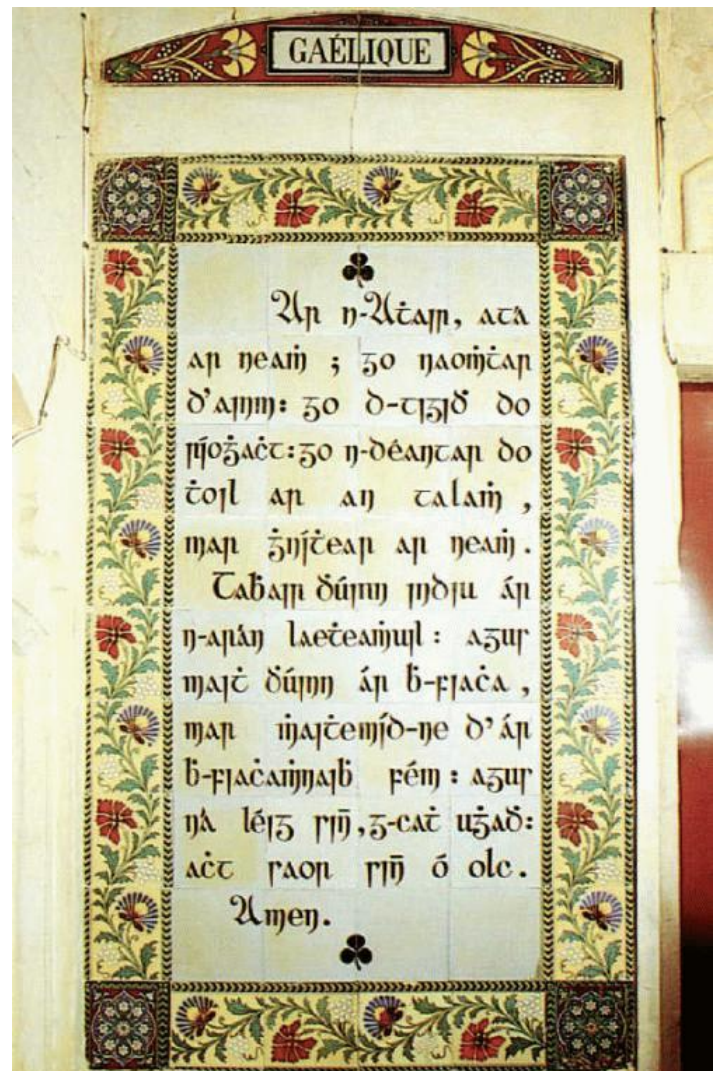 GAÉLIQUE
Ar n-Aṫair, atá
ar neaṁ ; go naoṁṫar
d'ainm: go d-tigiḋ do
ríoġaċt: go n-déantar do
ṫoil ar an talaṁ ,
mar ġníṫear ar neaṁ.
Taḃair ḋúinn indiu ár
n-arán laeṫeaṁuil : agus
maiṫ ḋúinn ár ḃ-fiaċa ,
mar ṁaiṫemíd-ne d'ár
ḃ-fiaċaṁnaiḃ féin : agus
ná léig sin̄, g-caṫ uġaḋ:
aċt saor sin̄ ó olc.
Amen.